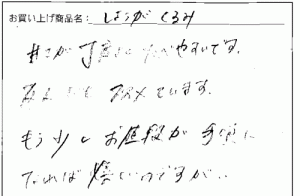 お買い上げ商品名： しょうが くるみ
甘さが丁度よく たべやすいです。
ススメています。
もう少しお値段が手頃に
なれば嬉しいのですが…